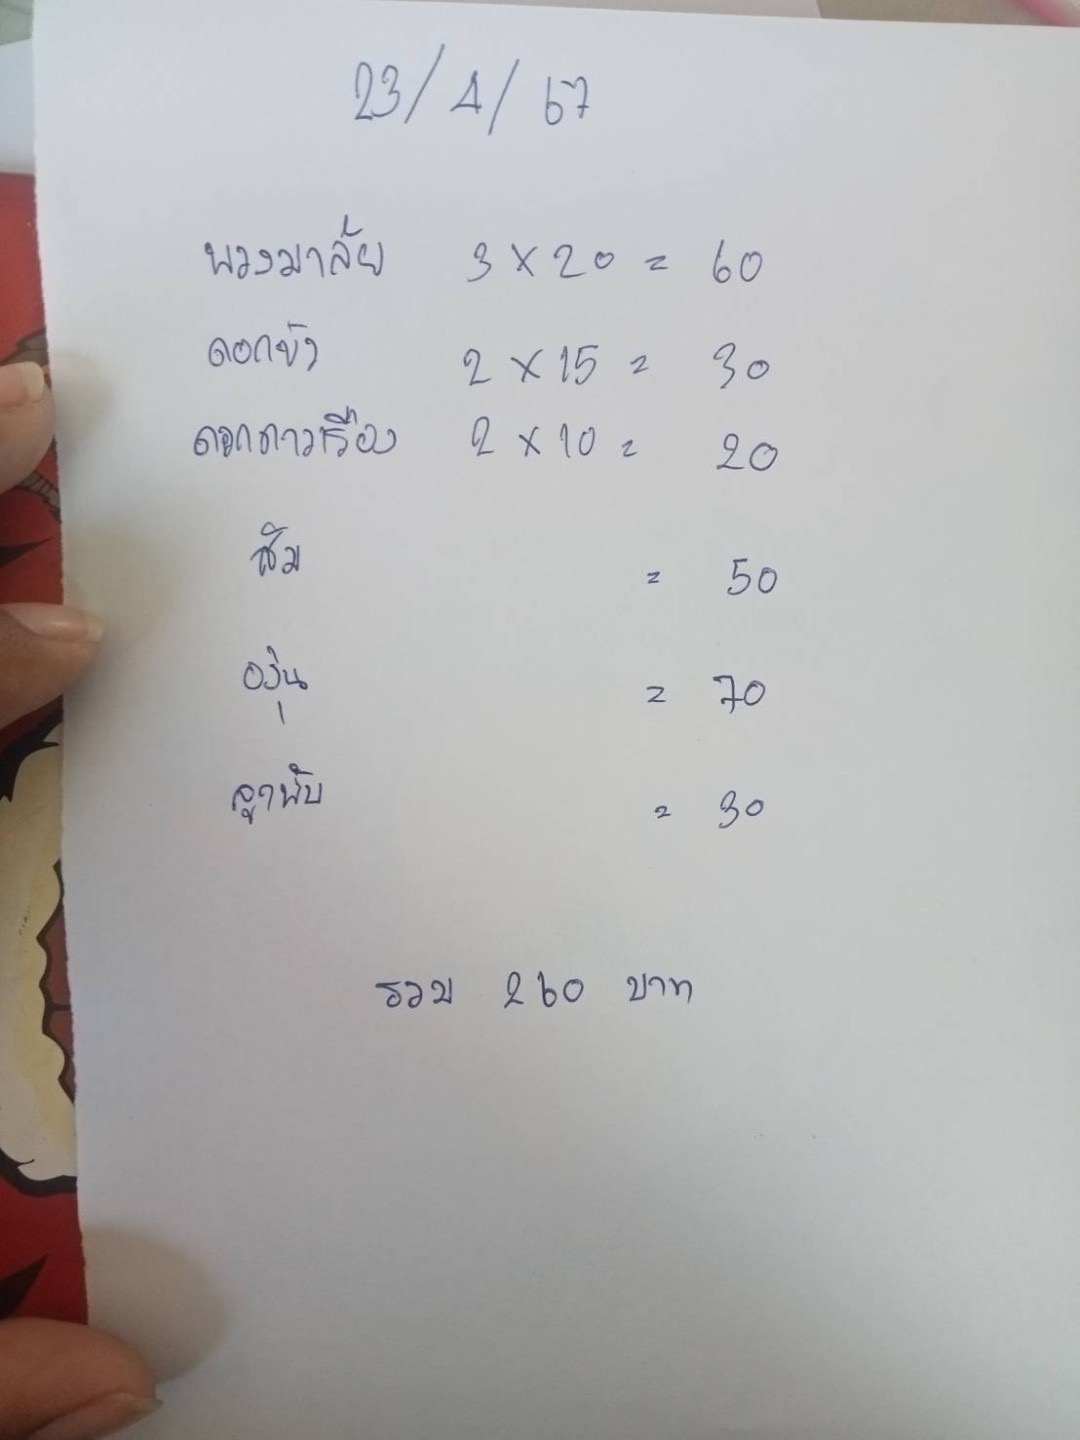 23/4/67
พวงมาลัย 3 × 20 = 60
ดอกบัว 2 × 15 = 30
ดอกดาวเรือง 2 × 10 = 20
ส้ม = 50
องุ่น = 70
ลูกพับ = 30
รวม 260 บาท